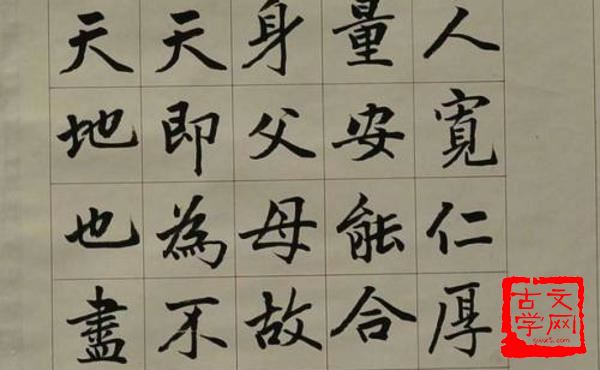 人寬仁厚
量安能合
身父母故
天即為不
天地也盡
古文
学网
gwxt.com